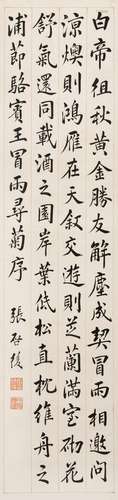 白帝徂秋黃金勝友解塵成契冒雨相邀問
涼燠則鴻雁在天叙交遊則芝蘭滿室砌花
舒氣還同載酒之園岸葉低松直枕維舟之
浦節駱賓王冒雨尋菊序
張启後